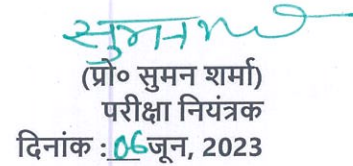 सुमन
(प्रो० सुमन शर्मा)
परीक्षा नियंत्रक
दिनांक : 06 जून, 2023